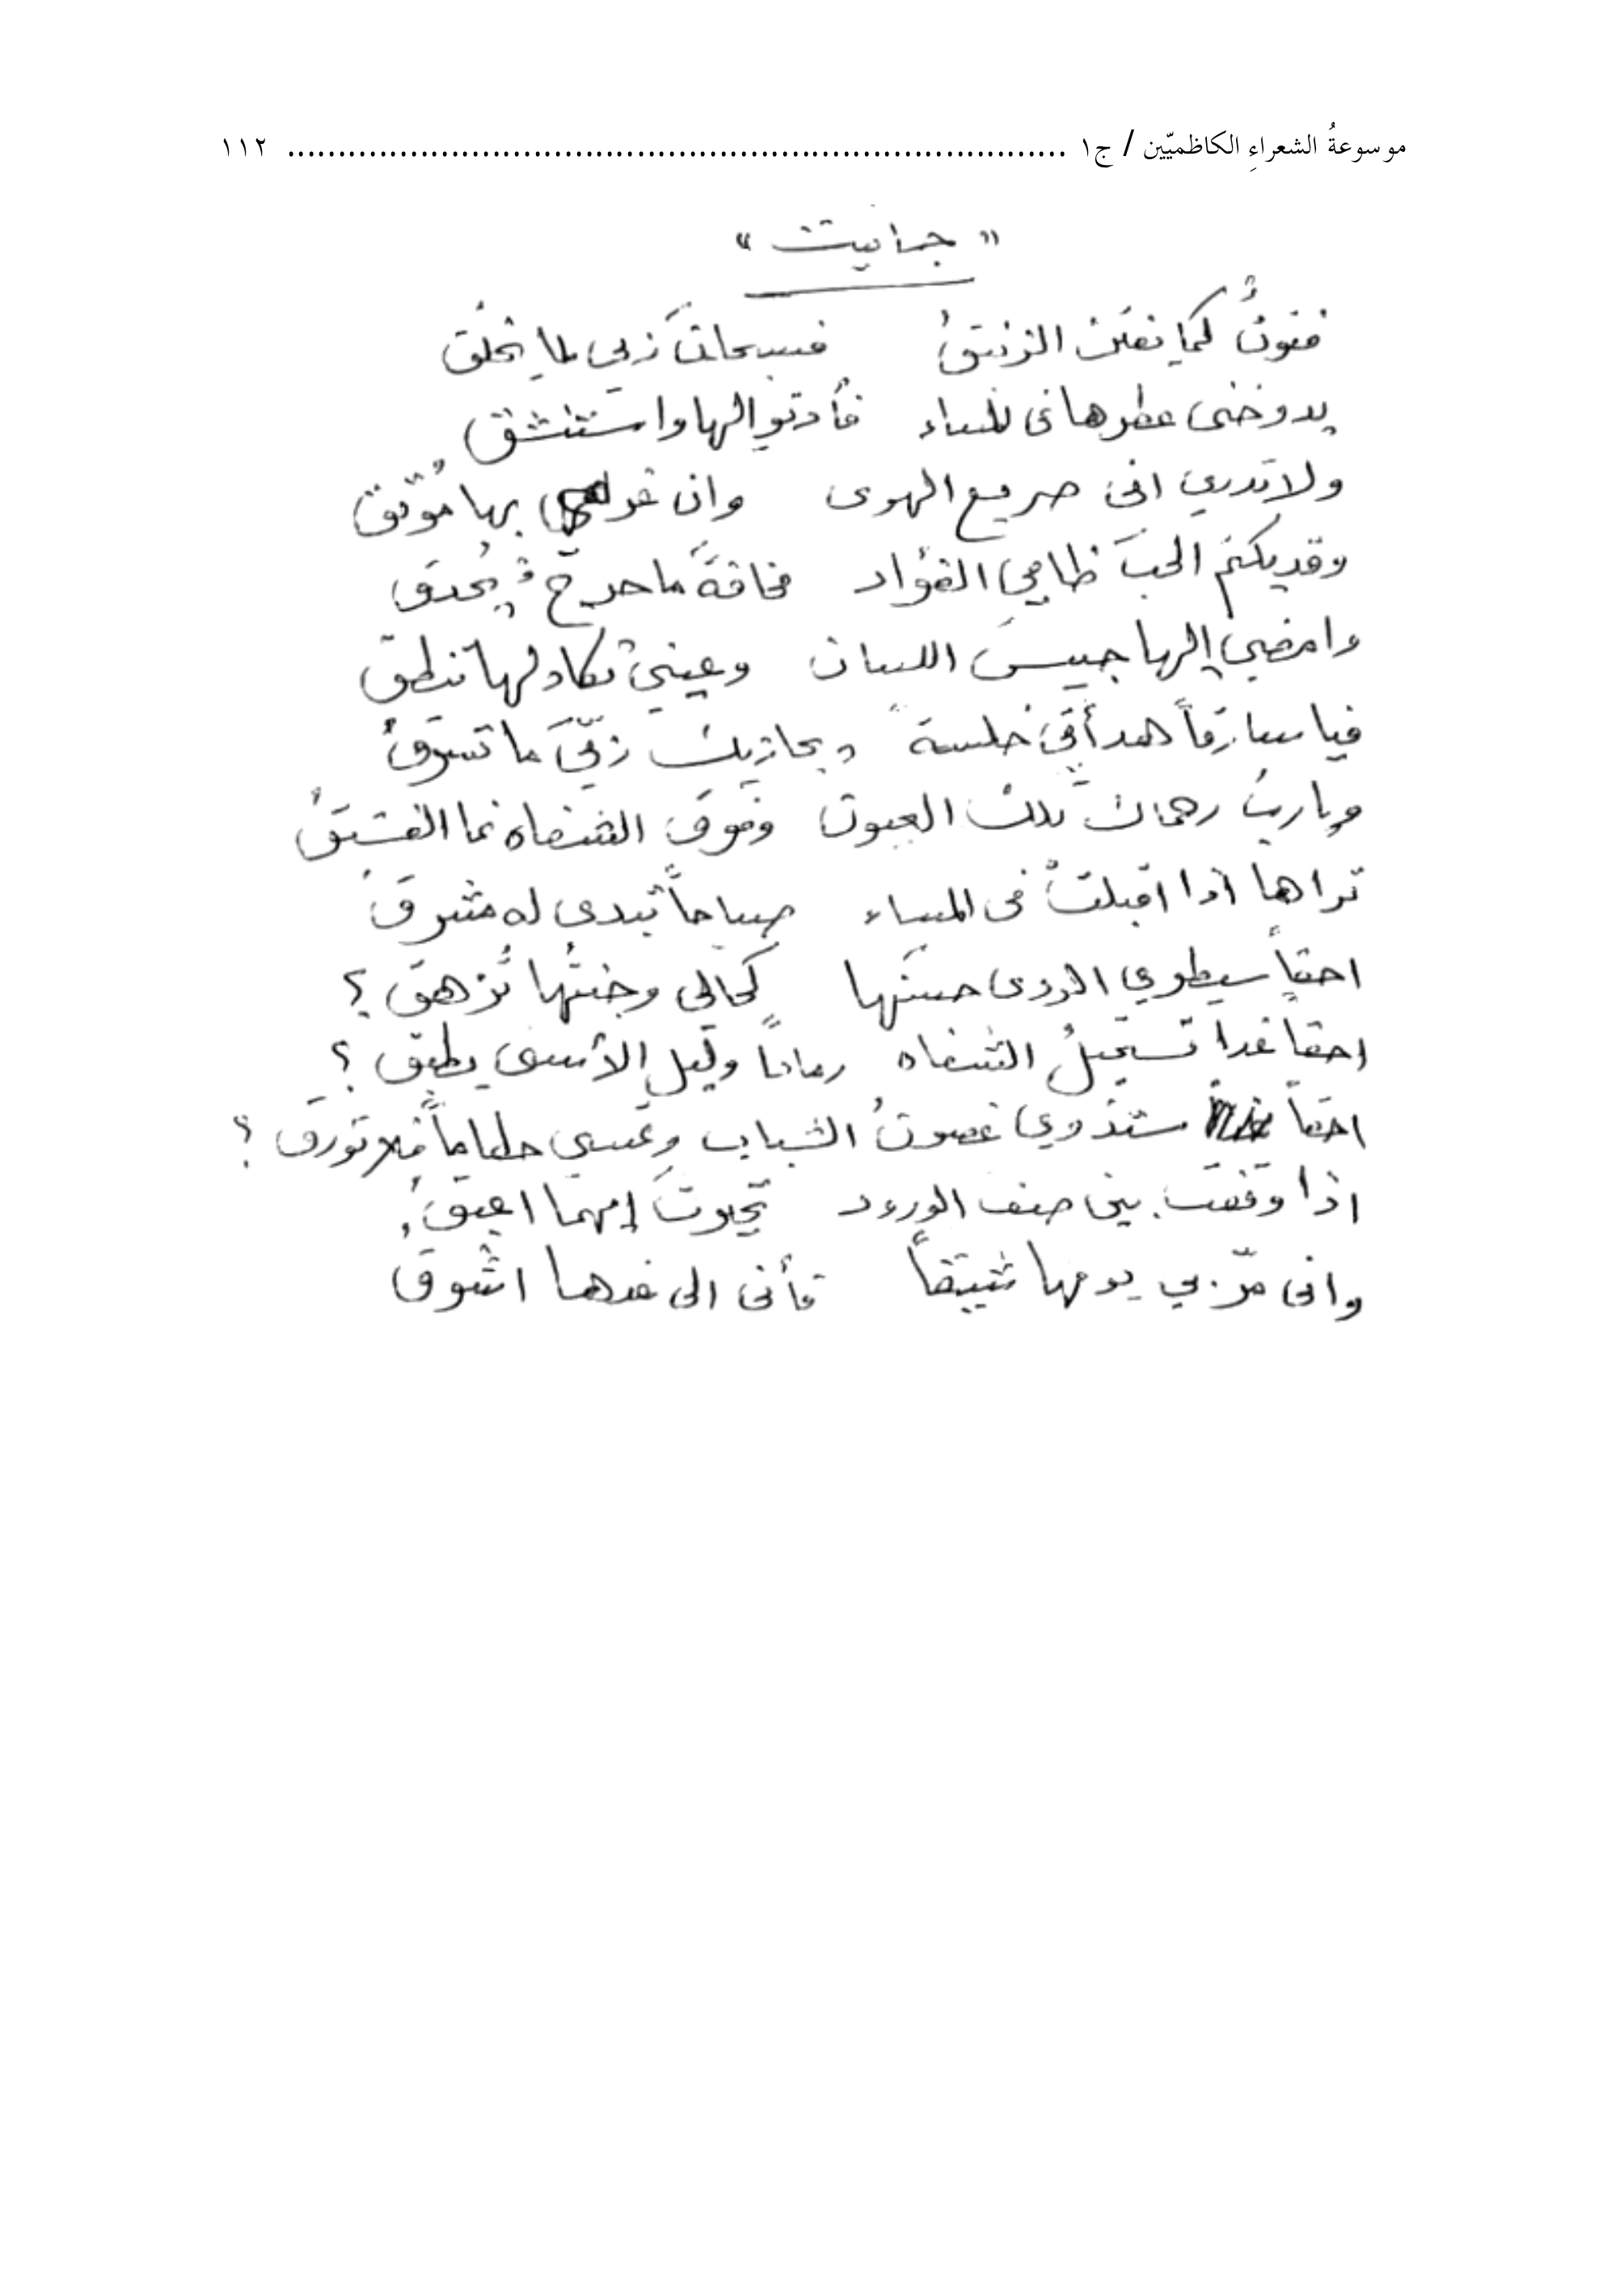 موسوعةُ الشعراءِ الكاظميّين / ج١ ........................................................................ ١١٢
" جانيت "
فتونٌ كما يفتن الزنبقُ فسبحانَ ربي لما يخلُق
يدوخني عطرها في المساء فأدنو إليها واستنشق
ولا تدري اني صريع الهوى وان بها مُوثق
وقد يكتم الحبَ ظامي الفؤاد مخافةَ ما حرجٍ يُحدق
وامضي إليها حبيسَ اللسان وعيني تكاد لها تنطق
فيا سارقاً خلسةً يجازيك ربّيَ ما تسرقُ
ويا ربُ رحماك تلك العيون وفوقَ الشفاه نما الفستقُ
تراها اذا اقبلتْ في المساء صباحاً تبدى له مشرقُ
احقاً سيطوي الردى حسنَها كحالي وجنتُها تُزهق ؟
احقا غدا تستحيلُ الشفاه رماداً وليل الأسى يطبق ؟
احقاً ستذوي غصونُ الشباب وتمسي حطاماً فلا تورق ؟
اذا وقفت بين صف الورود تحيرتَ إيهما اعبقُ
واني مرّ بي يومها شيقاً فأني الى غدها اشوقُ